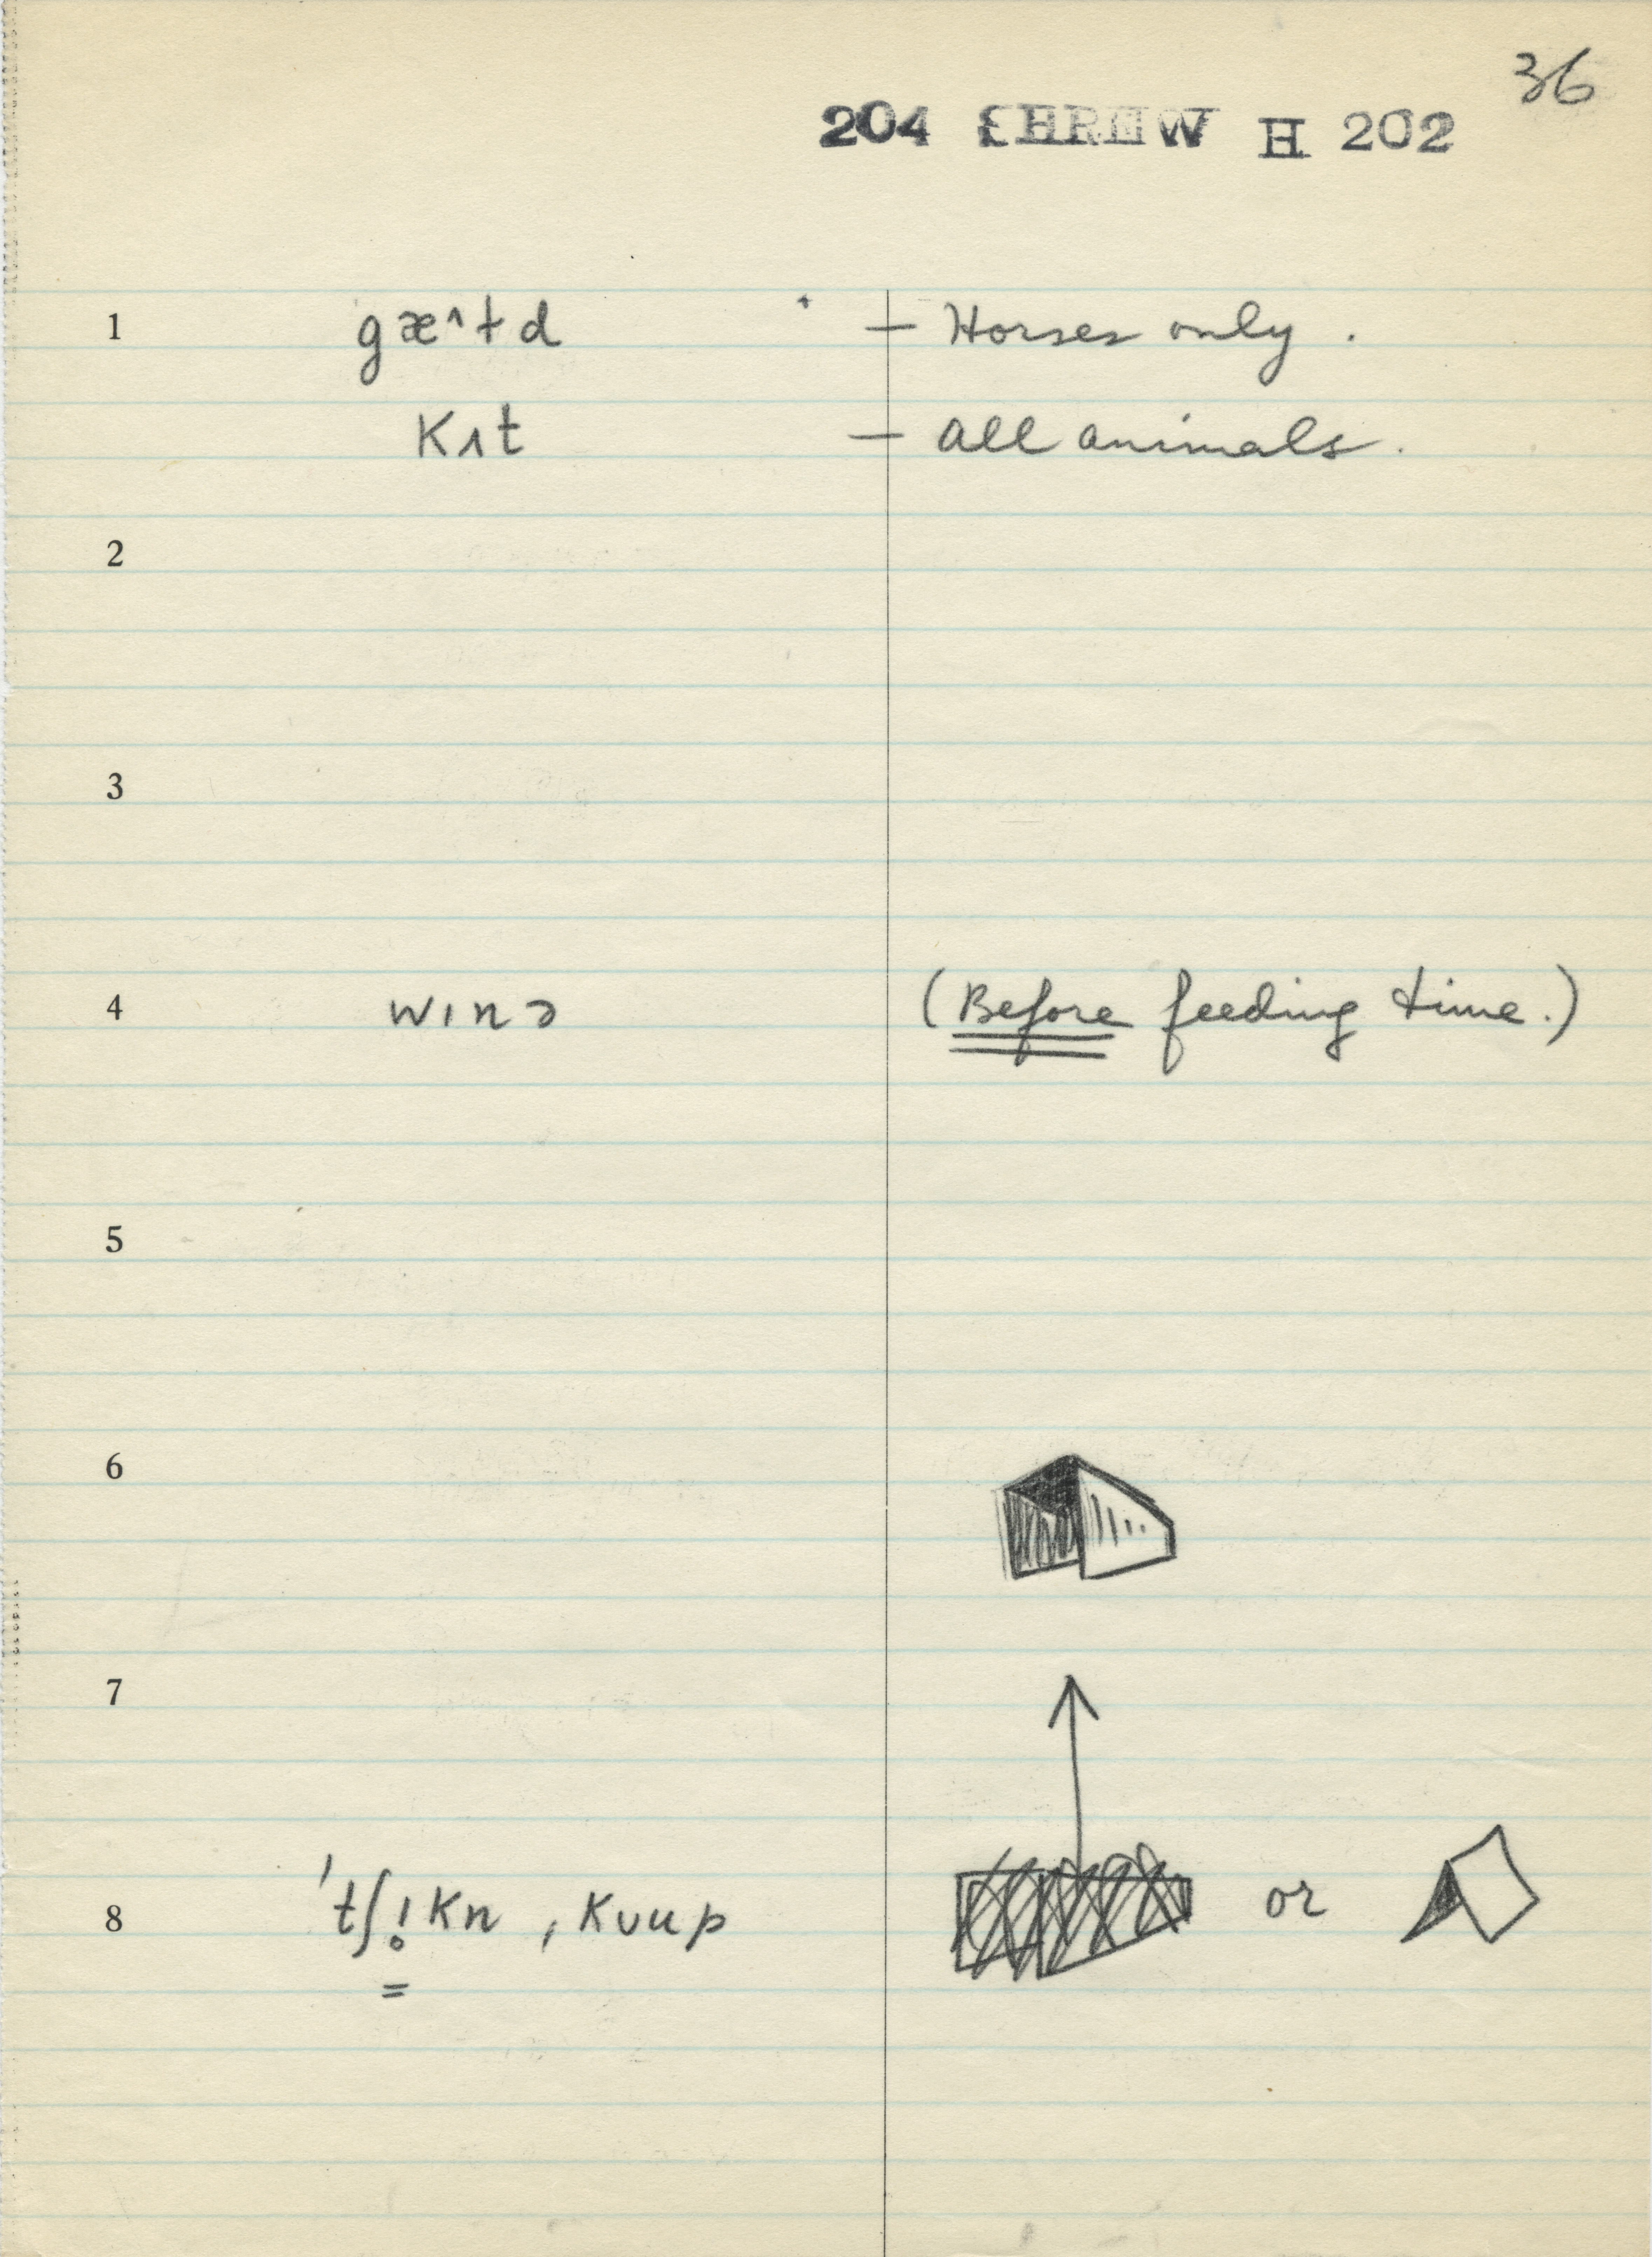 36
204 SHREW H 202
1 gæ^ɫd — Horses only.
Kʌt — All animals.
2
3
4 wınə (Before feeding time.)
5
6
7
8 'tʃı̥Kn , Kvup or